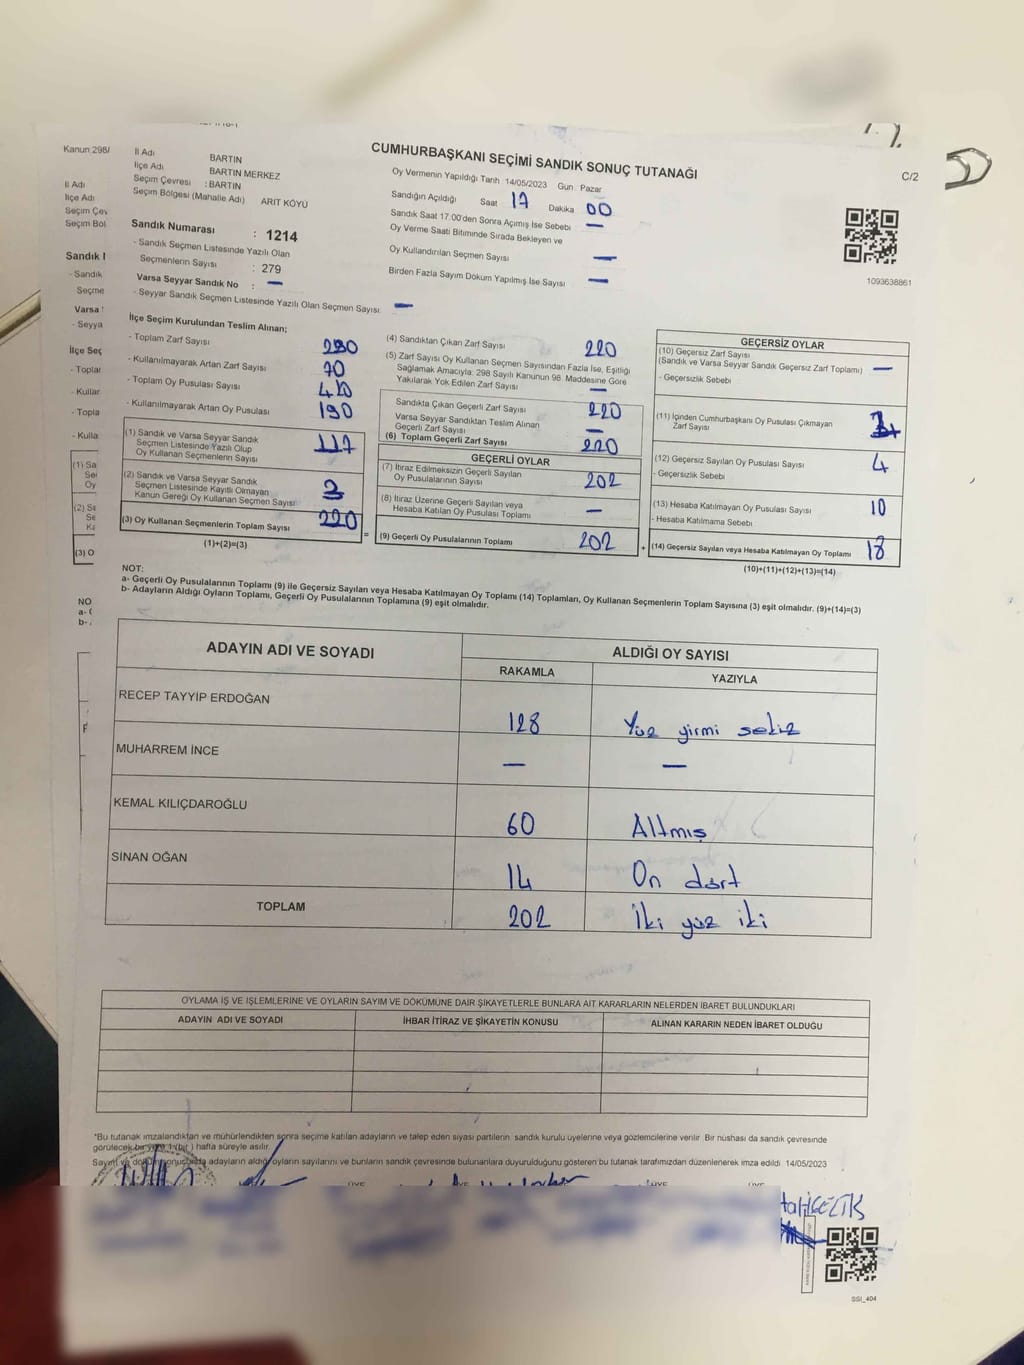 Kanun 298/
İl Adı BARTIN
İlçe Adı BARTIN MERKEZ
Seçim Çevresi : BARTIN
Seçim Bölgesi (Mahalle Adı) ARIT KÖYÜ
CUMHURBAŞKANI SEÇİMİ SANDIK SONUÇ TUTANAĞI
C/2
Oy Vermenin Yapıldığı Tarih 14/05/2023 Gün Pazar
Sandığın Açıldığı Saat 17 Dakika 00
Sandık Saat 17:00'den Sonra Açımış İse Sebebi —
Oy Verme Saati Bitiminde Sırada Bekleyen ve
Oy Kullandırılan Seçmen Sayısı —
Birden Fazla Sayım Döküm Yapılmış İse Sayısı —
1093638861
Sandık Numarası : 1214
- Sandık Seçmen Listesinde Yazılı Olan
Seçmenlerin Sayısı : 279
Varsa Seyyar Sandık No : —
- Seyyar Sandık Seçmen Listesinde Yazılı Olan Seçmen Sayısı: —
İlçe Seçim Kurulundan Teslim Alınan;
- Toplam Zarf Sayısı
- Kullanılmayarak Artan Zarf Sayısı 70
- Toplam Oy Pusulası Sayısı
- Kullanılmayarak Artan Oy Pusulası 190
(1) Sandık ve Varsa Seyyar Sandık
Seçmen Listesinde Yazılı Olup
Oy Kullanan Seçmenlerin Sayısı
(2) Sandık ve Varsa Seyyar Sandık
Seçmen Listesinde Kayıtlı Olmayan
Kanun Gereği Oy Kullanan Seçmen Sayısı 3
(3) Oy Kullanan Seçmenlerin Toplam Sayısı 220
(1)+(2)=(3)
(4) Sandıktan Çıkan Zarf Sayısı 220
(5) Zarf Sayısı Oy Kullanan Seçmen Sayısından Fazla İse, Eşitliği
Sağlamak Amacıyla: 298 Sayılı Kanunun 98. Maddesine Göre
Yakılarak Yok Edilen Zarf Sayısı —
Sandıkta Çıkan Geçerli Zarf Sayısı 220
Varsa Seyyar Sandıktan Teslim Alınan
Geçerli Zarf Sayısı —
(6) Toplam Geçerli Zarf Sayısı 220
GEÇERLİ OYLAR
(7) İtiraz Edilmeksizin Geçerli Sayılan
Oy Pusulalarının Sayısı 202
(8) İtiraz Üzerine Geçerli Sayılan veya
Hesaba Katılan Oy Pusulası Toplamı —
(9) Geçerli Oy Pusulalarının Toplamı 202
GEÇERSİZ OYLAR
(10) Geçersiz Zarf Sayısı
(Sandık ve Varsa Seyyar Sandık Geçersiz Zarf Toplamı) —
- Geçersizlik Sebebi
(11) İçinden Cumhurbaşkanı Oy Pusulası Çıkmayan
Zarf Sayısı
(12) Geçersiz Sayılan Oy Pusulası Sayısı 4
- Geçersizlik Sebebi
(13) Hesaba Katılmayan Oy Pusulası Sayısı 10
- Hesaba Katılmama Sebebi
(14) Geçersiz Sayılan veya Hesaba Katılmayan Oy Toplamı 18
(10)+(11)+(12)+(13)=(14)
NOT:
a- Geçerli Oy Pusulalarının Toplamı (9) ile Geçersiz Sayılan veya Hesaba Katılmayan Oy Toplamı (14) Toplamları, Oy Kullanan Seçmenlerin Toplam Sayısına (3) eşit olmalıdır. (9)+(14)=(3)
b- Adayların Aldığı Oyların Toplamı, Geçerli Oy Pusulalarının Toplamına (9) eşit olmalıdır.
ADAYIN ADI VE SOYADI
ALDIĞI OY SAYISI
RAKAMLA YAZIYLA
RECEP TAYYİP ERDOĞAN 128 Yüz yirmi sekiz
MUHARREM İNCE — —
KEMAL KILIÇDAROĞLU 60 Altmış
SİNAN OĞAN 14 On dört
TOPLAM 202 İki yüz iki
OYLAMA İŞ VE İŞLEMLERİNE VE OYLARIN SAYIM VE DÖKÜMÜNE DAİR ŞİKAYETLERLE BUNLARA AİT KARARLARIN NELERDEN İBARET BULUNDUKLARI
ADAYIN ADI VE SOYADI İHBAR İTİRAZ VE ŞİKAYETİN KONUSU ALINAN KARARIN NEDEN İBARET OLDUĞU
*Bu tutanak imzalandıktan ve mühürlendikten sonra seçime katılan adayların ve talep eden siyasi partilerin sandık kurulu üyelerine veya gözlemcilerine verilir. Bir nüshası da sandık çevresinde
görülecek bir yere 1 (bir) hafta süreyle asılır.
Sayım ve döküm sonucunda adayların aldığı oyların sayılarını ve bunların sandık çevresinde bulunanlara duyurulduğunu gösteren bu tutanak tarafımızdan düzenlenerek imza edildi. 14/05/2023
SSI_404